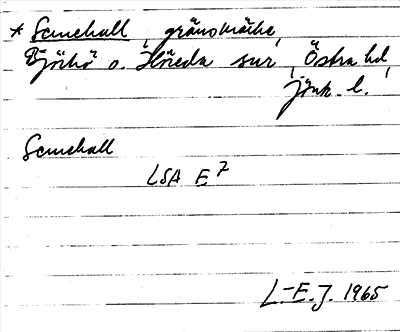 * Samshall, gränsmärke,
Björkö o. Höreda snr, Östra hd,
Jönk. l.
Samshall
LSA E7
L-E.J. 1965